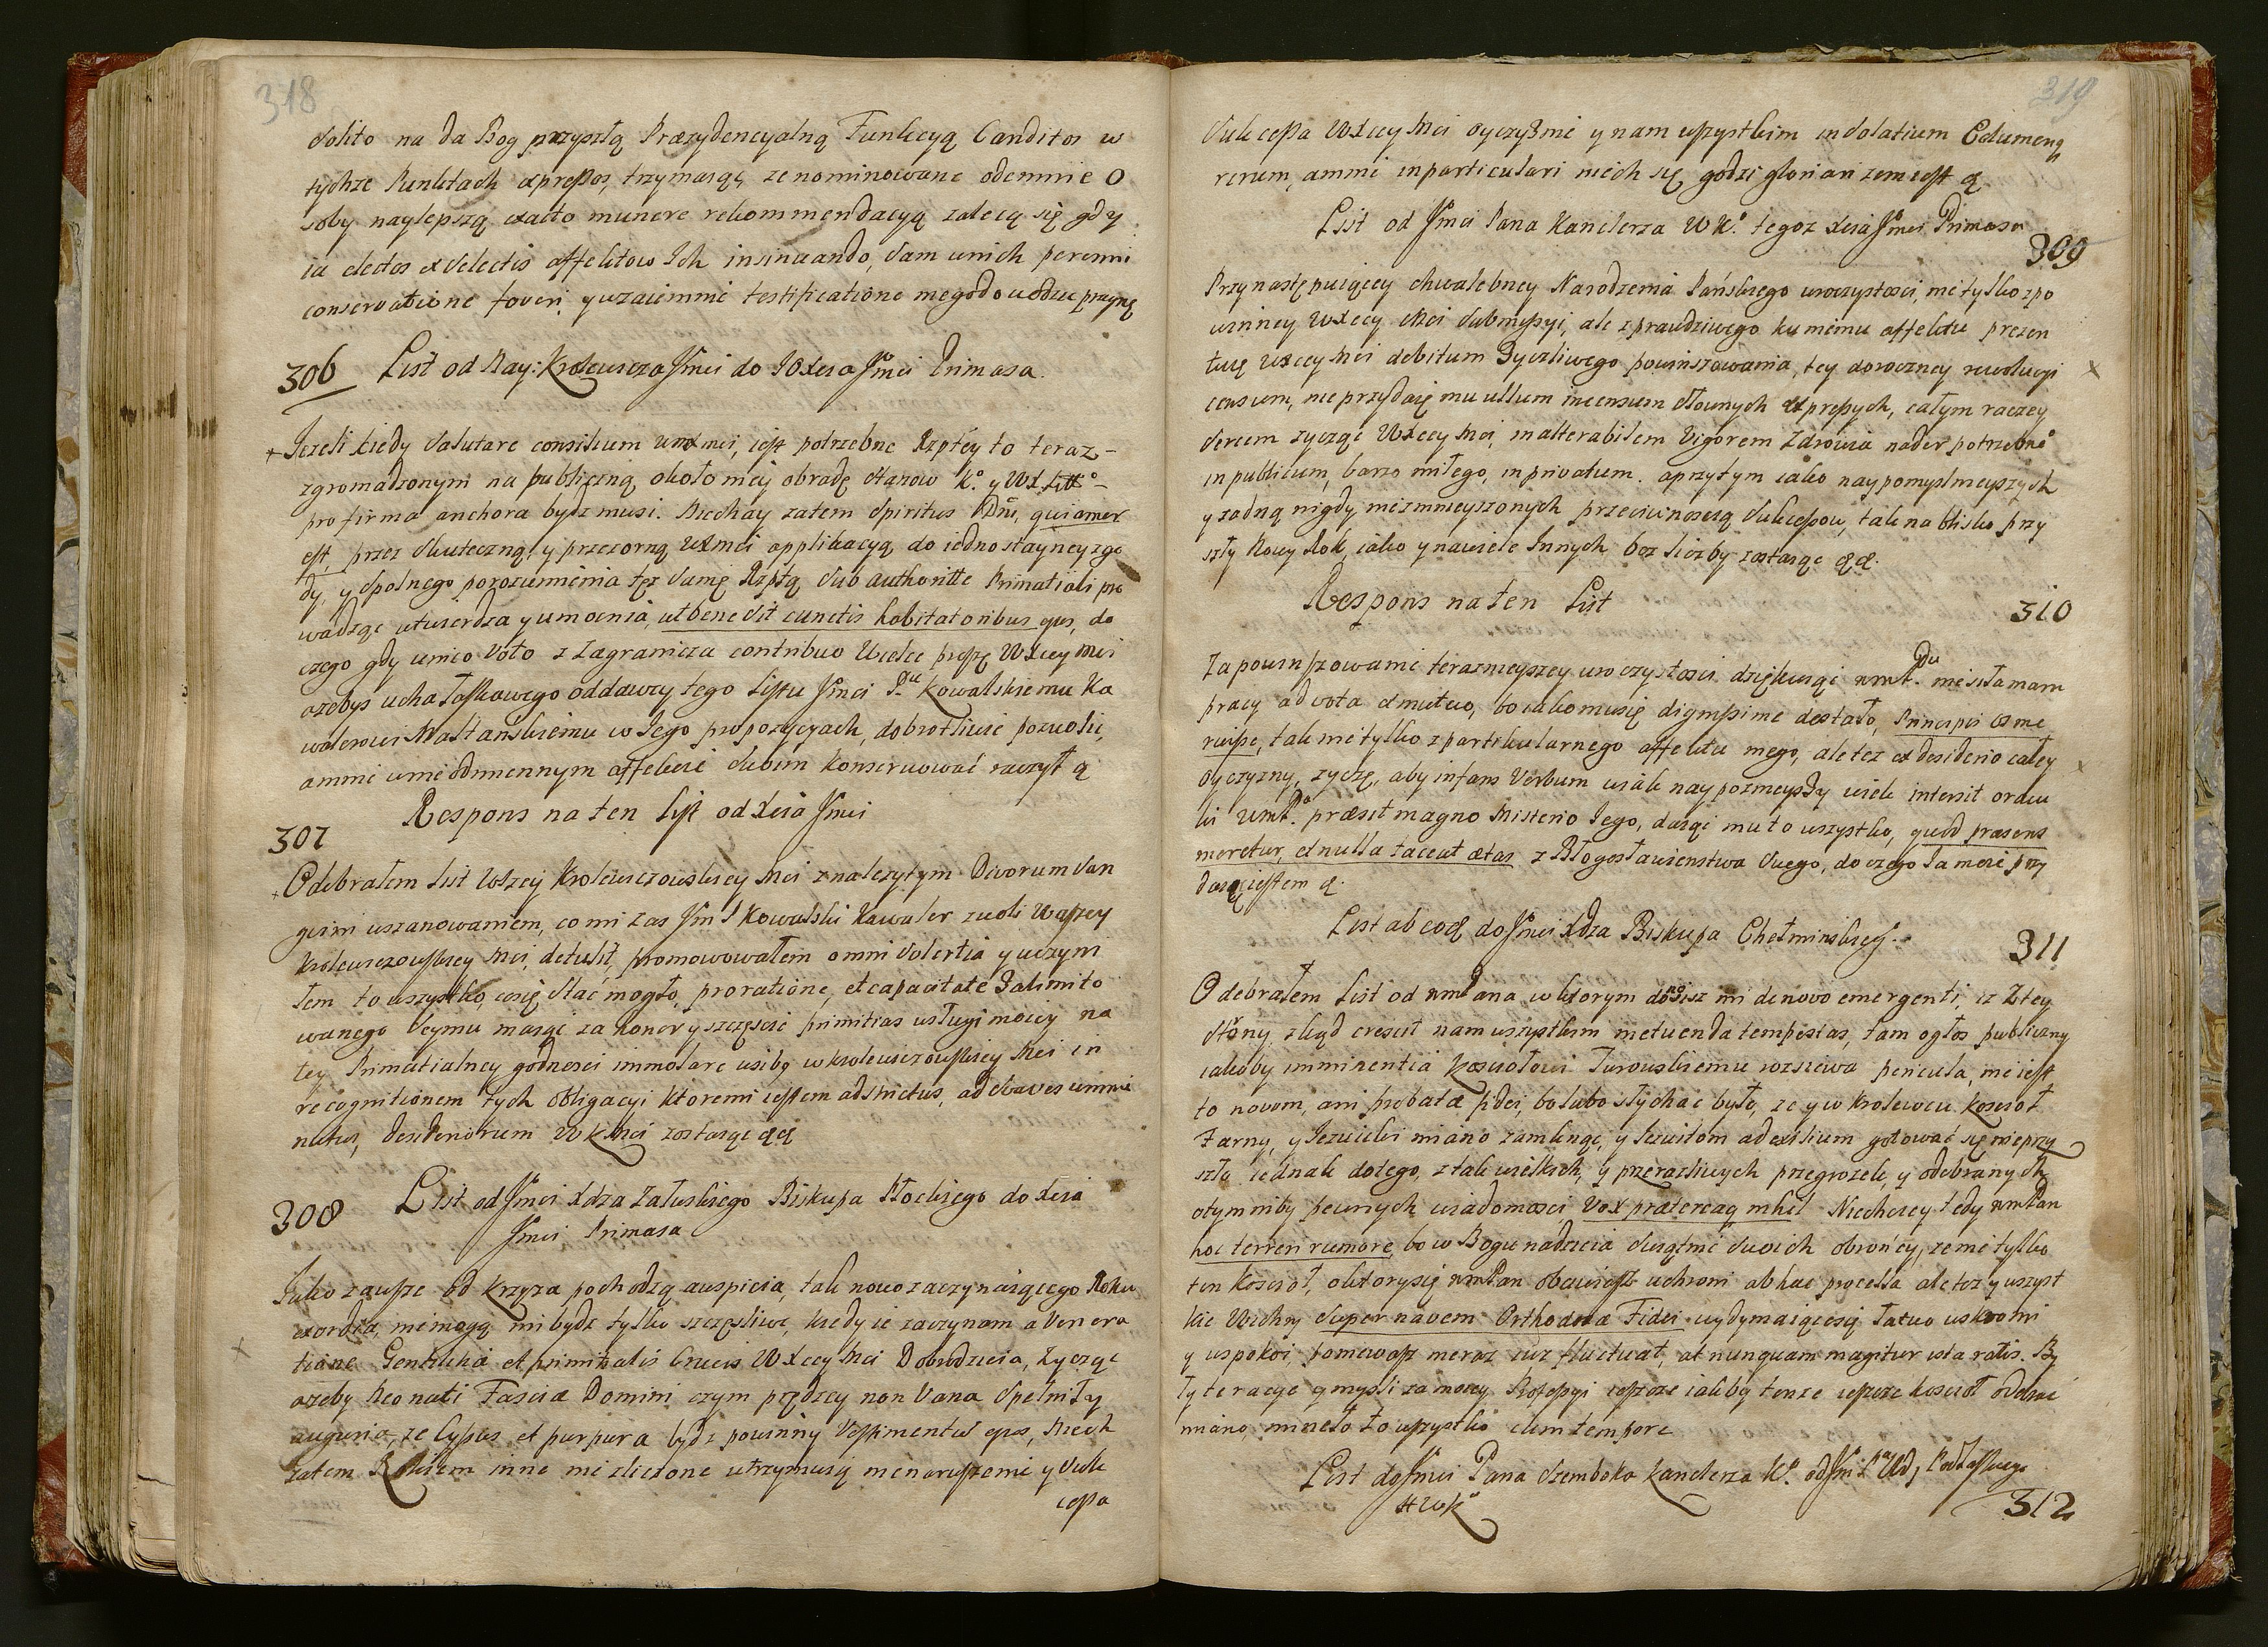 318
solito na da Bog przyszłą Præzydencyalną Funkcyą Canditos w
tychże Punktach expressos, trzymaiąc, ze nominowane odemnie O
soby naylepszą exacto munere rekommendacyą zalecą się gdy
ia electos ex delectis affektow Ich insinuando, sam u nich perenni
conservatione foveri, y wzaiemnie testificatione
306 List od Nay: Krolewicza Jmci do JOxcia Jmci Primasa.
Jezeli kiedy salutare consilium wxmci, iest potrzebne Rzptey to teraz-
zgromadzonym na publiczną około niey obradę stanow K.º y WX Litt.º-
pro firma anchora bydz musi. Niechay zatem Spiritus Dñi, qui amor
est, przez skuteczną, y przezorną wxmci applikacyą do iednostayney zgo
dy, y spolnego porozumienia tęz samę Rzptą sub authoritte Primatiali pro
wadząc utwierdza y umocnia, ut bene sit cunctis habitatoribus eius, do
czego gdy unico voto z zagranicza contribuo Wielce proszę WXcey Mci
azebys ucha łaskawego oddawcy tego listu Jmci Pnu Kowalskiemu Ka
walerowi Maltanskiemu w Jego propozycyach, dobrotliwie pozwolić,
a mnie w nieodmiennym affekcie swoim konserwować raczył &
Respons na ten list od Xcia Jmci
307
Odebrałem list Wszey Krolewiczowskiey Mci z nalezytym Divorum San
guini uszanowaniem, co mi zas Jm P Kowalski Kawaler z woli Waszey
Krolewiczowskiey Mci, detulit, promowowałem omni solertia y uczyni
łem to wszystko, co się stać mogło, pro ratione, et capacitate Zalimito
wanego Seymu maiąc za honor y szczęscie primitias usługi moiey na
tey Primatialney godnosci immolare w krolewiczowskiey Mci in
recognitionem tych obligacyi ktoremi iestem adstrictus, ad
nutus, desideriorum WKMci zostaiąc &&
308 List od Jmci Xdza Załuskiego Biskupa Płockiego do Xcia
Jmci Primasa
Jako zawsze od krzyza pochodzą auspicia, tak nowo zaczynaiącego Roku
exordia, nie mogą mi bydz tylko szczęsliwe, kiedy ie zaczynam a Venera
tione Gentilicia et primitialis Crucis WXcey Mci Dobrodzieia, zycząc
azeby Neonati Fasciæ Domini czym prędzey non vana spełniły
auguria, ze Cyssus et purpura bydz powinny Vestimentum eius, Niech
zatem z Rokiem inne niezliczone utrzymuią nienaruszenie y Suk
cessa
319
Sukcessa WXcey Mci oyczyznie y nam wszystkim in solatium
rerum, a mnie in particulari niech się godzi gloriari zem iest &
List od Jmci Pana Kanclerza WK.º tegoz Xcia Jmci Primasa
309
Przy następuiącey chwalebney Narodzenia Pańskiego uroczystosci, nie tylko z po
winney WXcey Mci submissyi, ale z prawdziwego ku niemu affektu prezen
tuię wxcey Mci debitum zyczliwego powinszowania, tey doroczney rewolucyi
censum, nie przydaię mu ullum incensum słownych expressyi, całym raczey
sercem zycząc WXcey Mci, inalterabilem Vigorem zdrowia nader potrzebnego
in publicum, barzo miłego, in privatum. a przytym iako naypomyslnieyszych
y zadną nigdy niezmnieyszonych przeciwnoscią sukcessow, tak na blisko przy
szły Nowy Rok, iako y na wiele Innych bez liczby zostaiąc &&.
Respons na ten List 310
Za powinszowanie terazneyszey uroczystosci dziękuiąc wmP.Du nie siła mam
pracy ad vota e mutuo, bo iako mu się dignissime dostało, Principis
tak nie tylko z partykularnego affektu mego, ale tez ex desiderio całey
oyczyzny, zyczę, aby infans Verbum w iak naypozneyszy wiek intersit oracu
lis wmP. præsit magno Misterio Jego, daiąc mu to wszystko, quod præsens
meretur, et nulla taceat ætas z Błogosławienstwa swego, do czego
iestem &.
List ab eodem do Jmci Xdza Biskupa Chełminskiego. 311
Odebrałem List od wmPana w ktorym donosisz mi de novo emergenti, iz z tey
strony, zkąd crescit nam wszystkim metuenda tempestas, tam ogłos publiczny
iakoby imminentia Kosciołowi Turowskiemu rozsiewa pericula, nie iest
to novum, ani probatæ fidei, bo lubo słychac było, ze y w Krolewcu koscioł
Farny, y Jezuicki miano zamknąc, y Jezuitom ad exilium gotować się nie przy
szło iednak do tego, z tak wielkich, y przerazliwych przegrozek, y odebranych
otym niby pewnych wiadomosci Vox prætereaq nihil Niechciey tedy wmPan
hoc terreri rumore, bo w Bogu nadzieia swiątnic swoich obrońcy, ze nie tylko
ten koscioł, o ktory się wmPan obawiasz uchroni ab hac procella ale tez y wszyst
kie Wichry super navem Orthodoxæ Fidei wydymaiące się łatwo uskromi
y uspokoi, poniewasz nieraz iuz fluctuat, at nunquam mergitur ista ratis. By
ły te racye y mysli za moiey Possessyi ieszcze iakoby tenze ieszcze koscioł odebrać
miano, mineło to wszystko cum tempore
List do Jmci Pana Szembeka Kanclerza K.º od Jmci
HWK 312